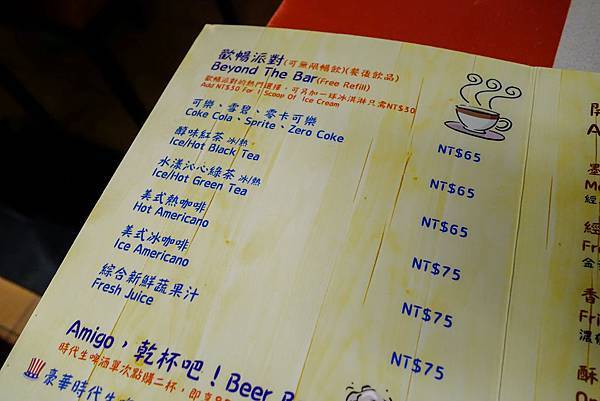 歡暢派對(可無限暢飲)(餐後飲品)
Beyond The Bar(Free Refill)
歡暢派對的熱門選擇，可另加一球冰淇淋只需NT$30
Add NT$30 For 1 Scoop Of Ice Cream
可樂、雪碧、零卡可樂
Coke Cola、Sprite、Zero Coke
NT$65
醇味紅茶 冰/熱
Ice/Hot Black Tea
NT$65
水漾沁心綠茶 冰/熱
Ice/Hot Green Tea
NT$65
美式熱咖啡
Hot Americano
NT$75
美式冰咖啡
Ice Americano
NT$75
綜合新鮮蔬果汁
Fresh Juice
NT$75
Amigo，乾杯吧！Beer
時代生啤酒單次點購二杯，即享
豪華時代生
開
墨
經
香
酥